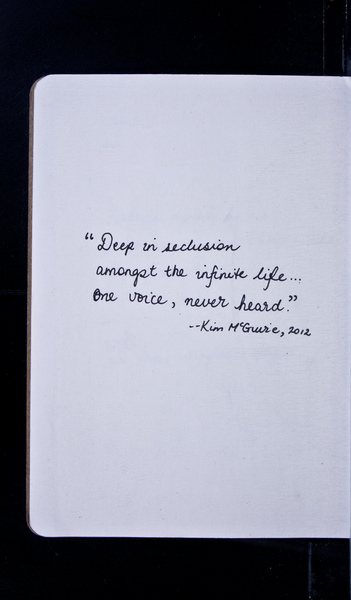 “Deep in seclusion
amongst the infinite life...
One voice, never heard.”
--Kim McGuire, 2012